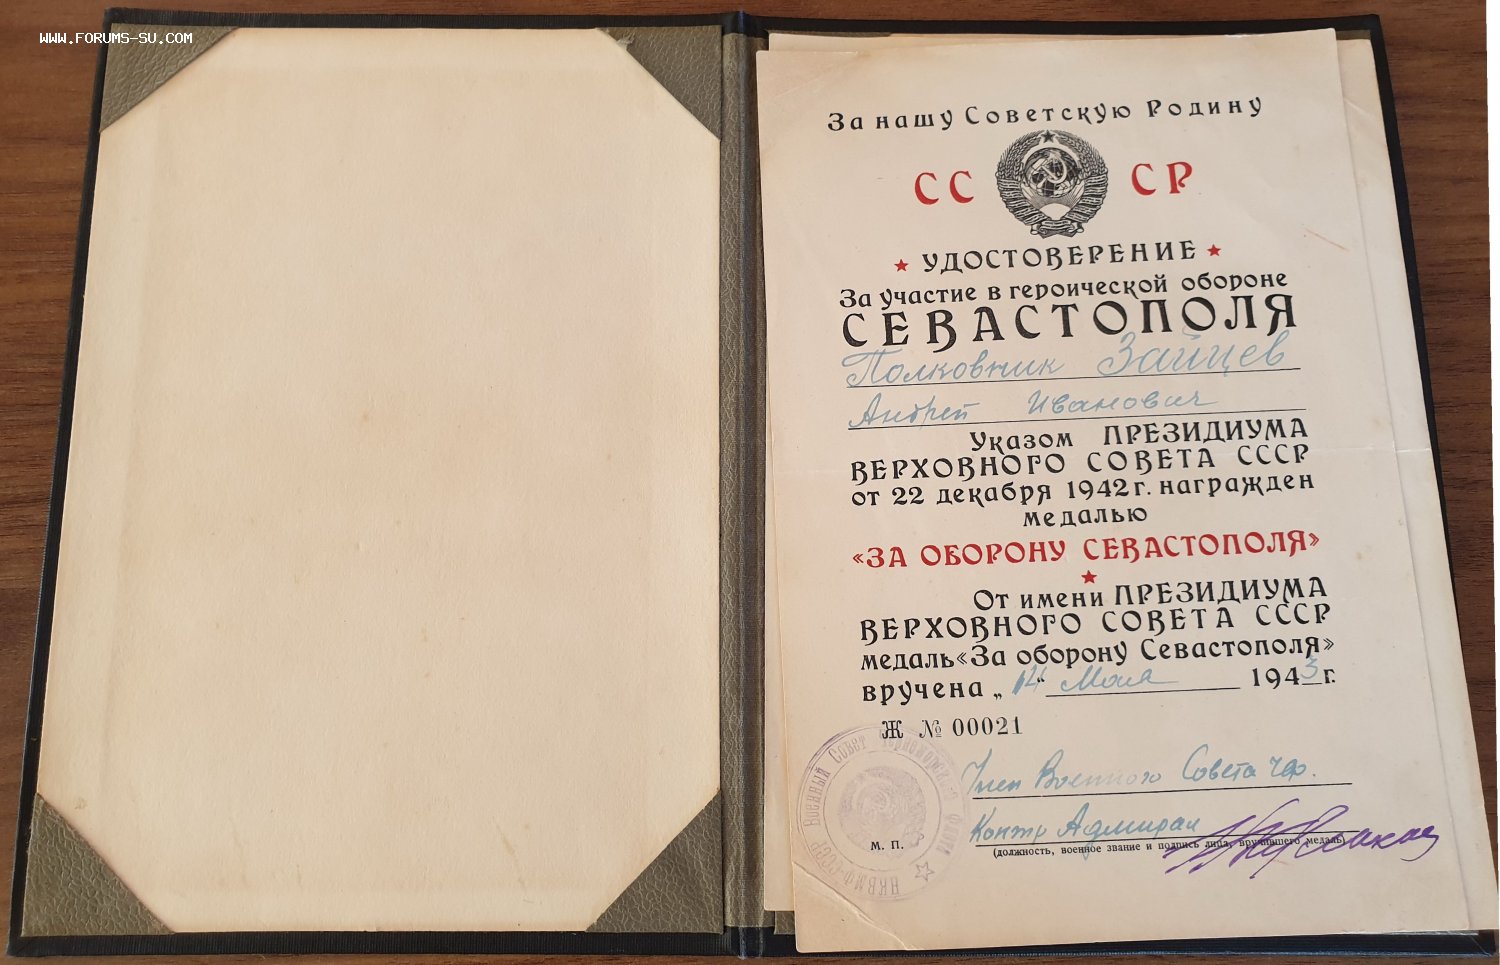 WWW.FORUMS-SU.COM
За нашу Советскую Родину
СС СР
УДОСТОВЕРЕНИЕ
За участие в героической обороне
СЕВАСТОПОЛЯ
Полковник Зайцев
Андрей Иванович
Указом ПРЕЗИДИУМА
ВЕРХОВНОГО СОВЕТА СССР
от 22 декабря 1942 г. награжден
медалью
«ЗА ОБОРОНУ СЕВАСТОПОЛЯ»
От имени ПРЕЗИДИУМА
ВЕРХОВНОГО СОВЕТА СССР
медаль «За оборону Севастополя»
вручена „14“ Мая 1943 г.
Ж № 00021
Член Военного Совета ЧФ.
Контр Адмирал
(должность, военное звание и подпись лица, вручившего медаль)
М. П.
НКВМФ-СССР Военный Совет Черноморского флота